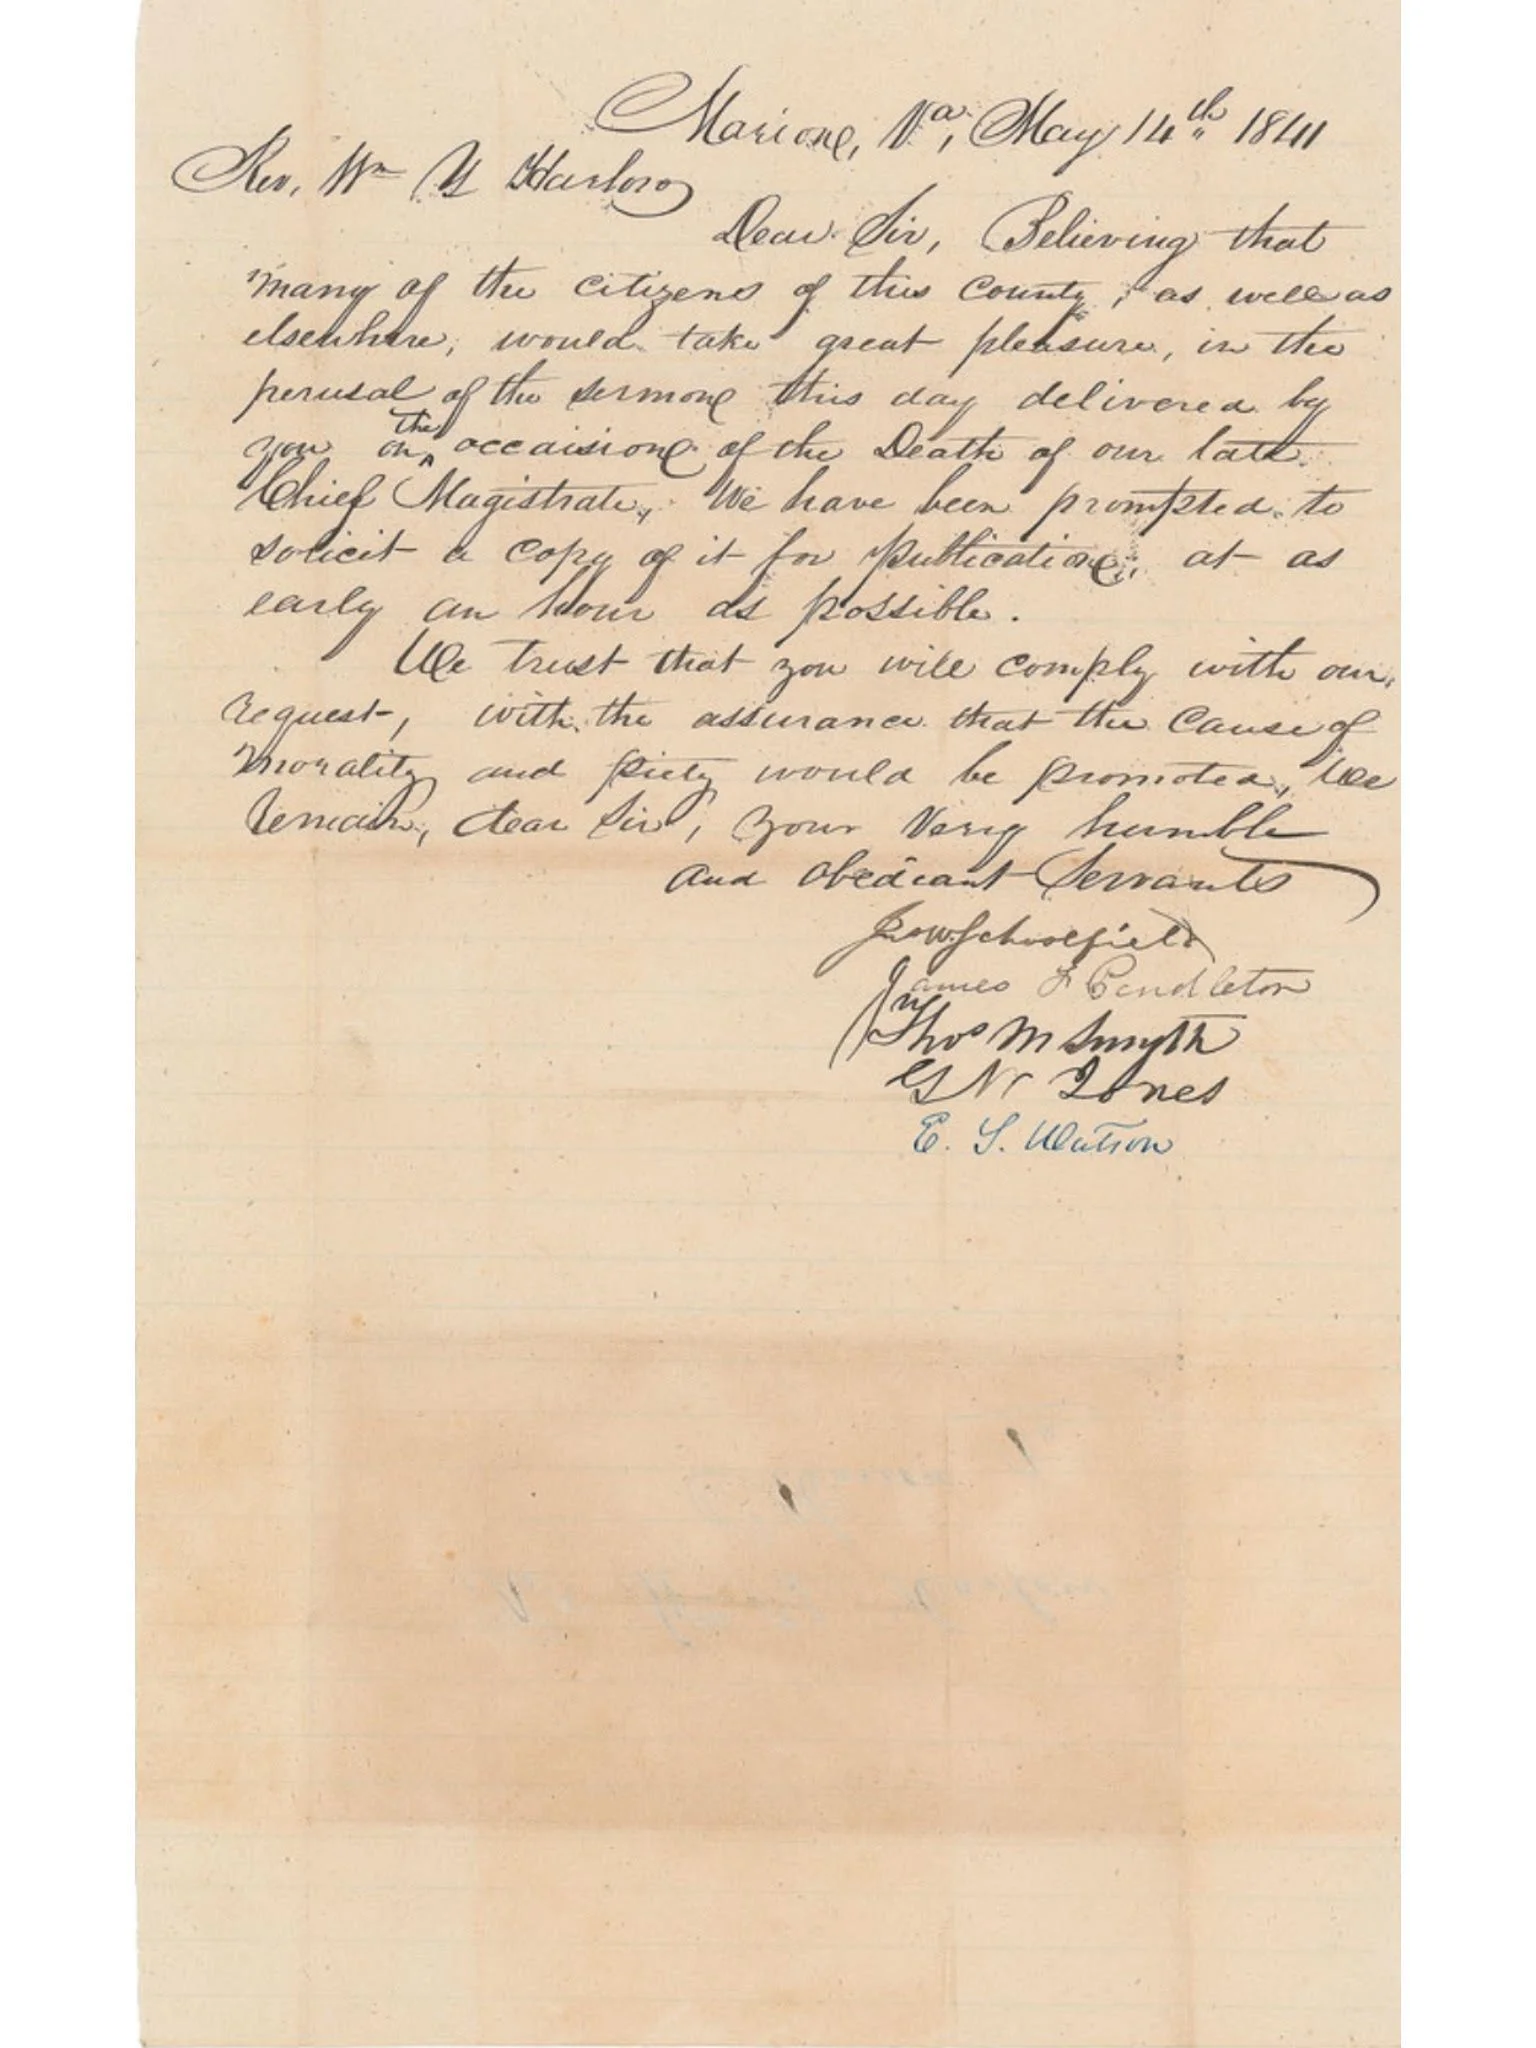 Marion, Va, May 14th 1841
Rev, Wm Y Harlow
Dear Sir, Believing that
many of the citizens of this county, as well as
elsewhere, would take great pleasure, in the
perusal of the sermon this day delivered by
you on the occaision of the Death of our late
Chief Magistrate, We have been prompted to
solicit a copy of it for publication, at as
early an hour as possible.
We trust that you will comply with our
request, with the assurance that the cause of
morality and piety would be promoted, We
Remain, dear Sir, your very humble
and obedeant Servants
Schoolfield
James F Pendleton
Thos M Smyth
G N Jones
E. S. Watson